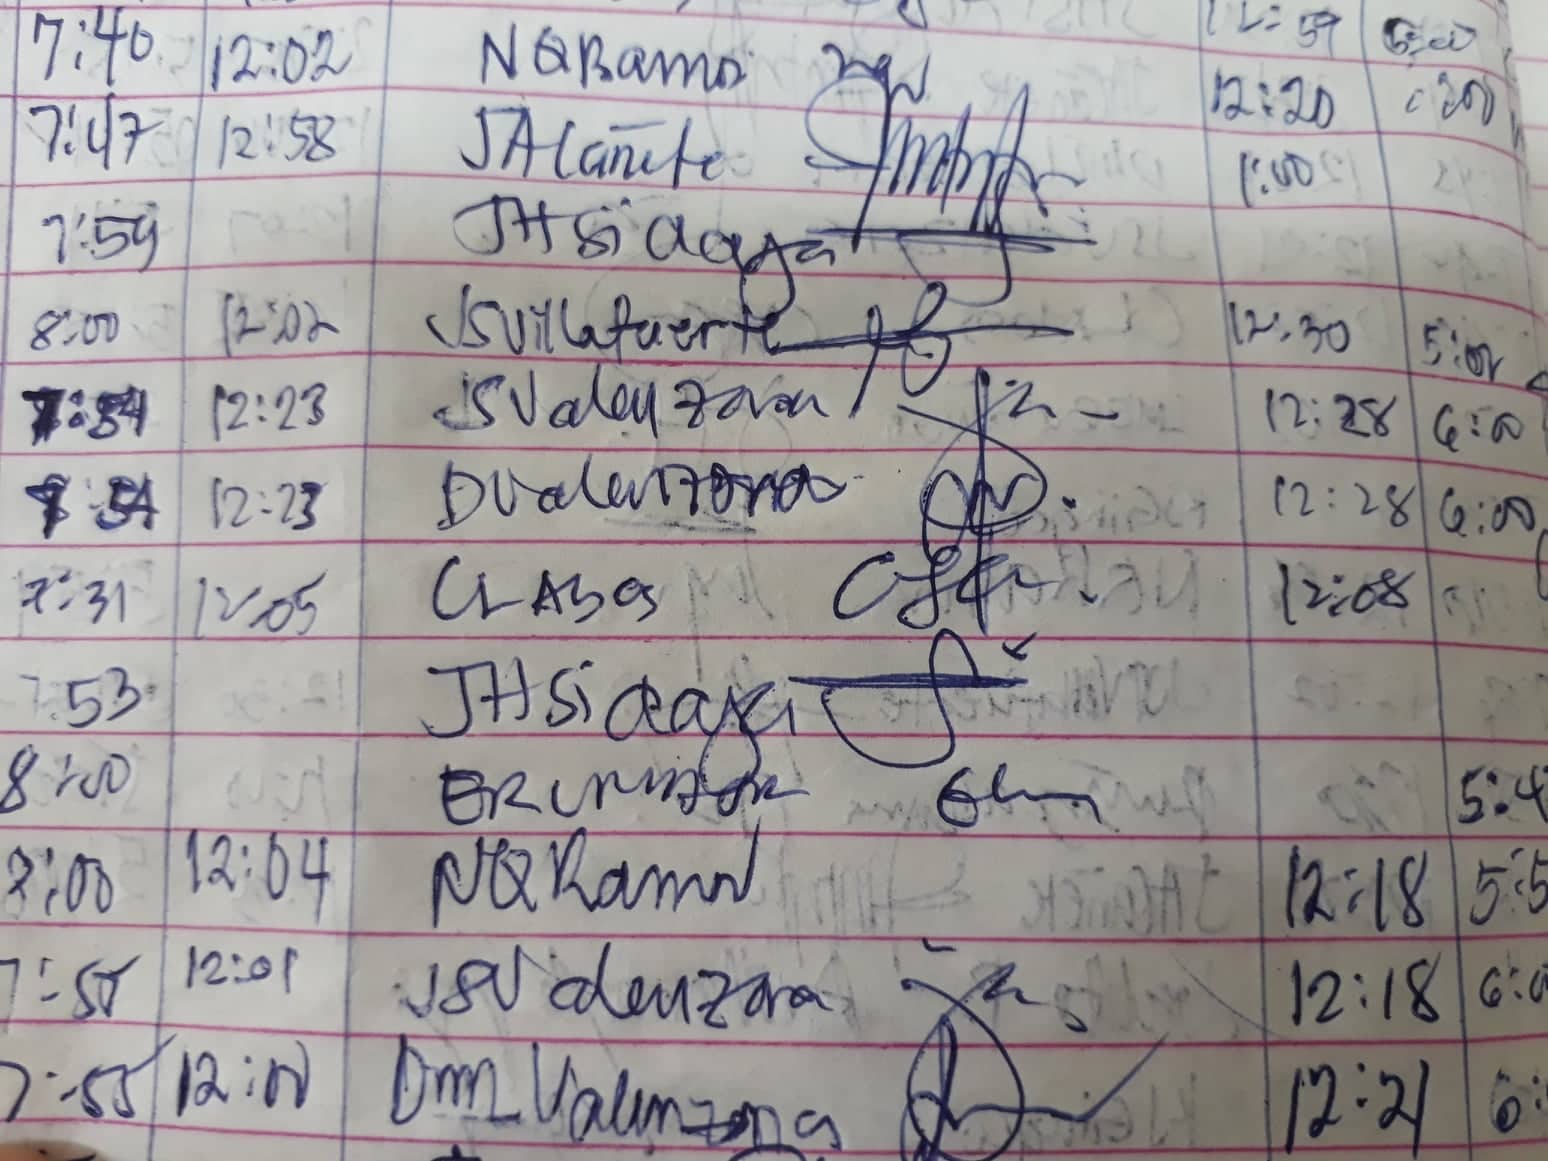 7:40 12:02 NQRamos 12:59 5:00
7:47 12:58 JACañete 12:20 :300
7:59 JHSidaya 1:00
8:00 12:02 JSVillafuerte 12:30 5:02
7:54 12:23 JSValenzona 12:28 6:00
7:54 12:23 DValenzona 12:28 6:00
7:31 12:05 CLABas 12:08
:53 JHSidaya
8:00 5:4
7:00 12:04 NQRamos 12:18 5:5
7:55 12:01 JSValenzona 12:18 6:0
7:55 12:00 DMLValenzona 12:21 6: